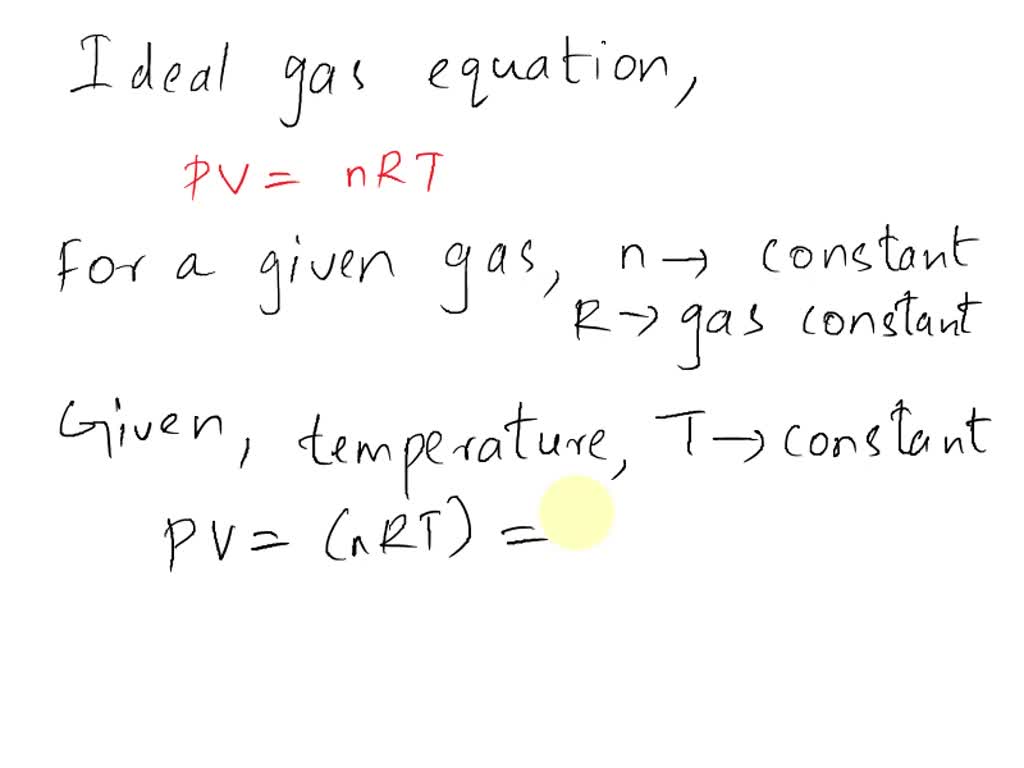 Ideal gas equation,
PV = nRT
For a given gas, n → constant
R → gas constant
Given, temperature, T → constant
PV = (nRT) =